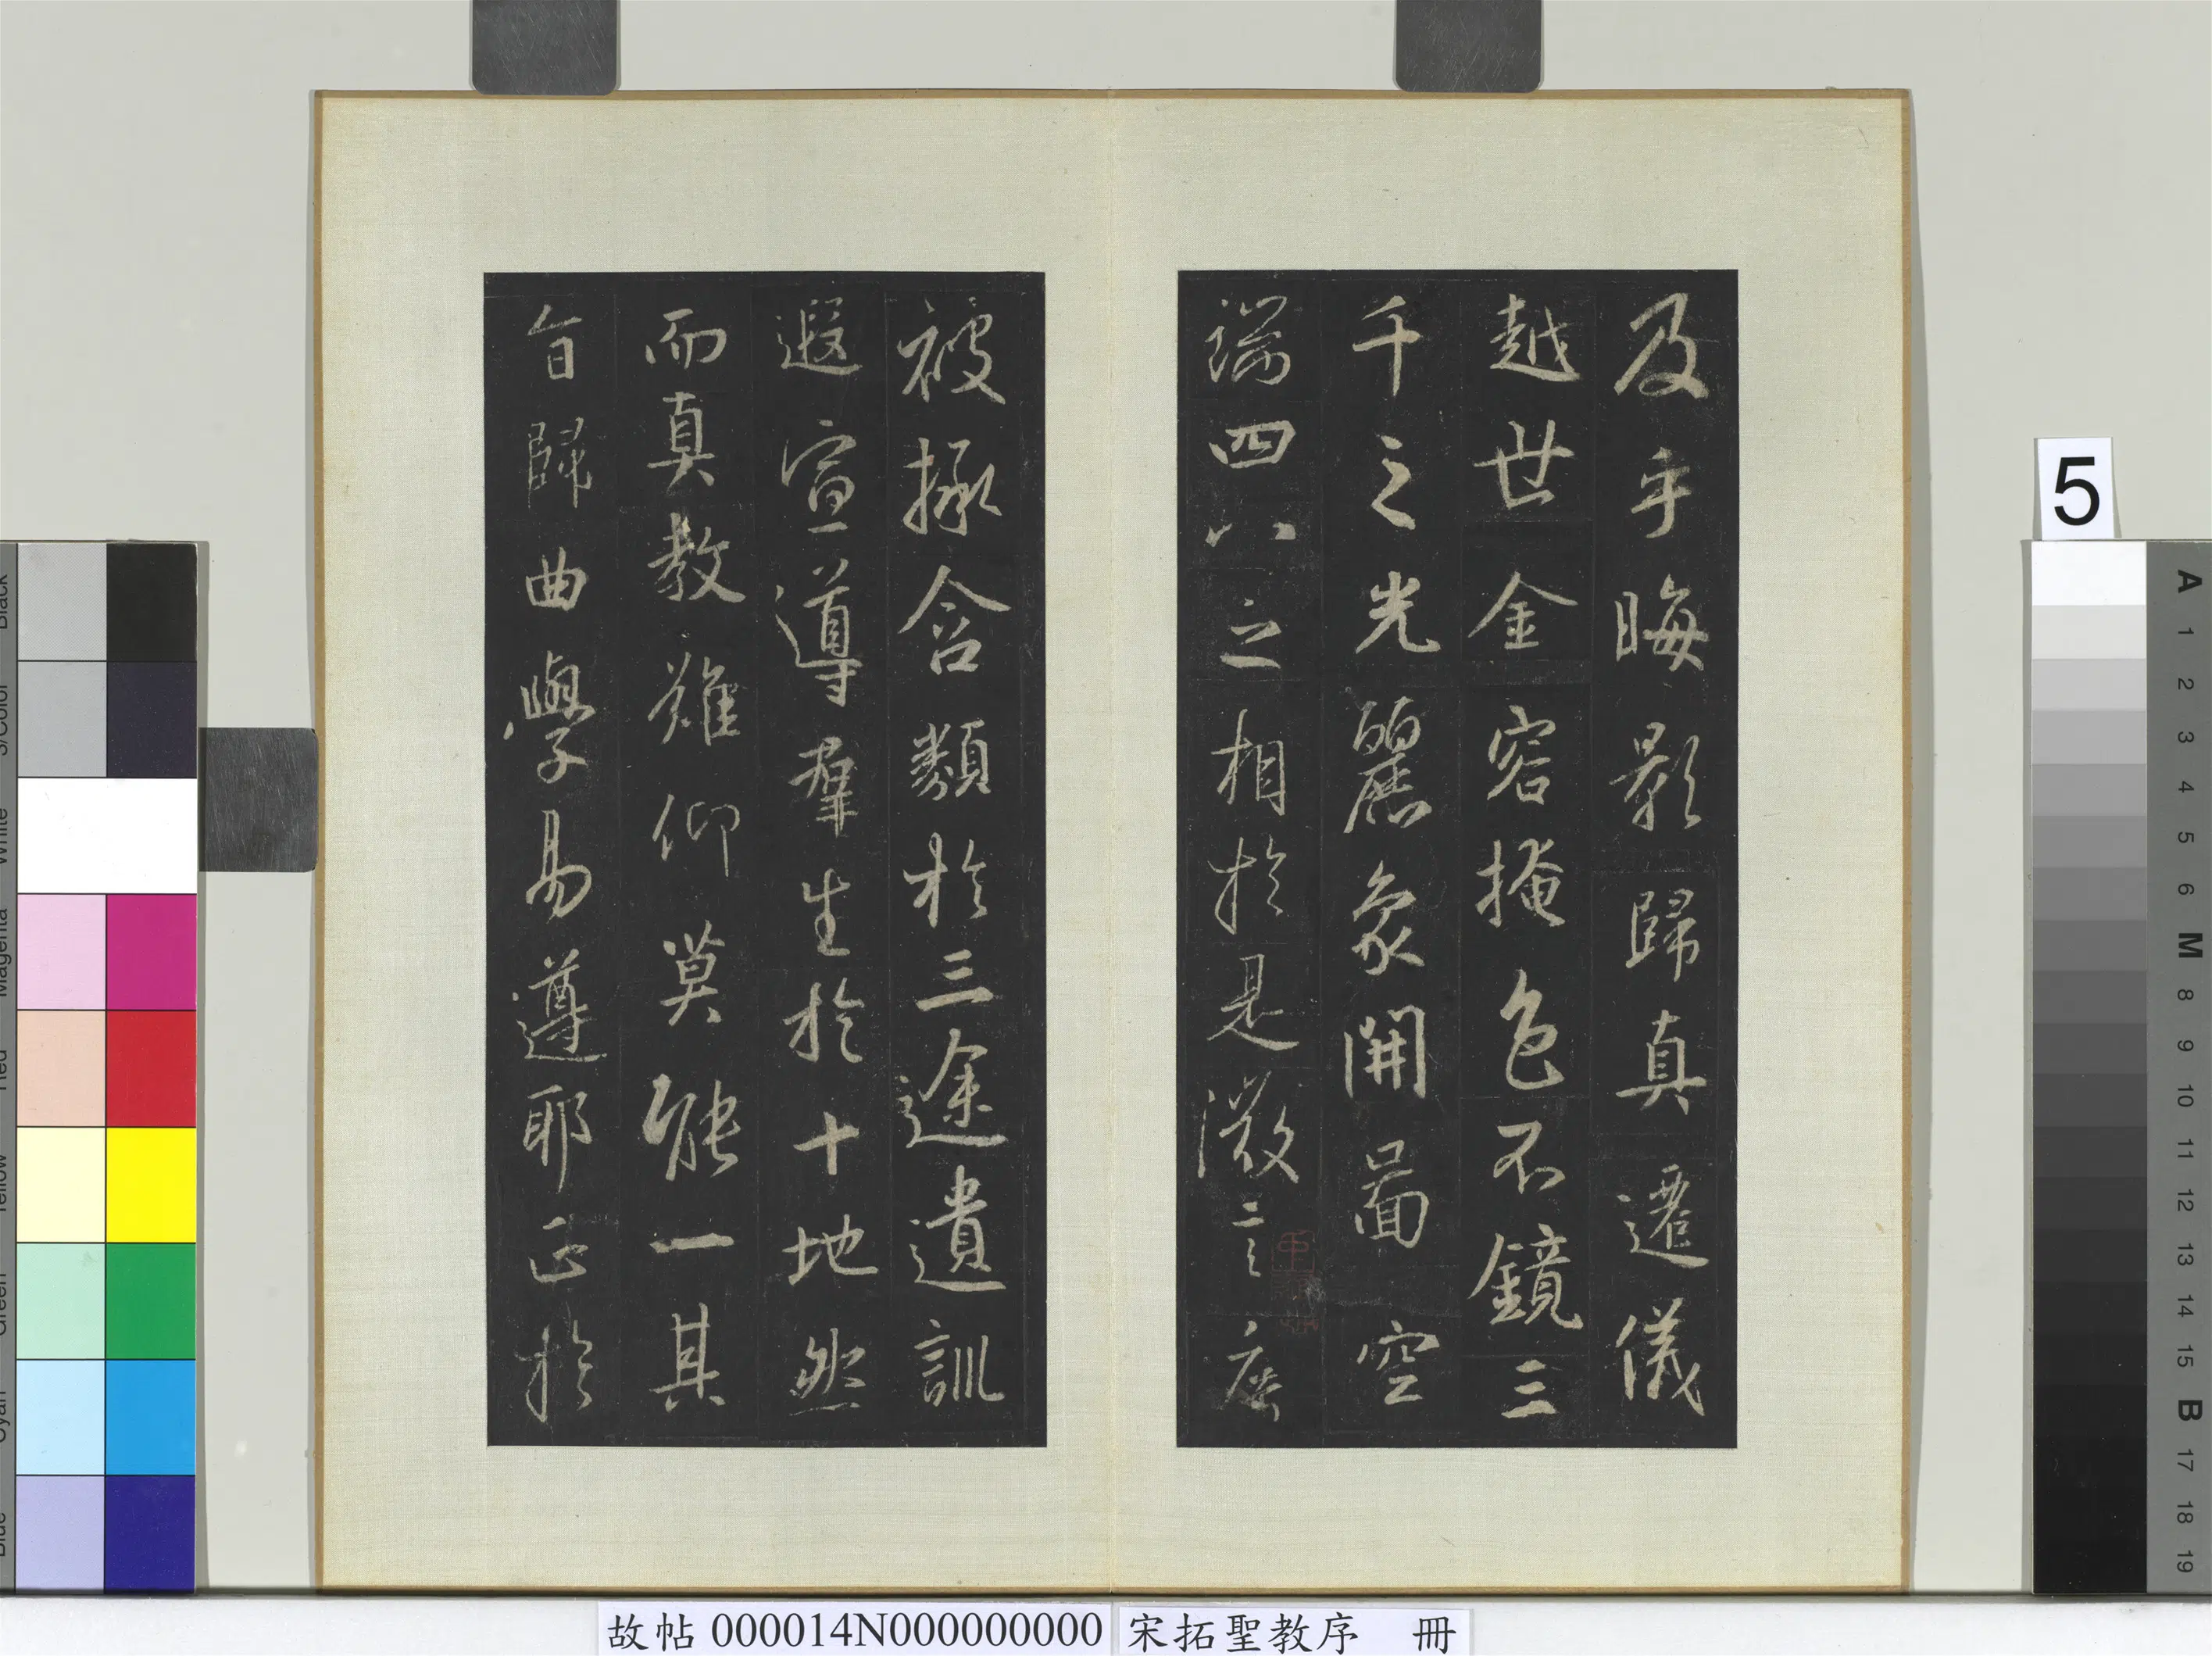 及乎晦影歸真遷儀
越世金容掩色不鏡三
千之光麗象開圖空
端四八之相於是微言廣
被拯含類於三途遺訓
遐宣導群生於十地然
而真教難仰莫能一其
旨歸曲學易遵耶正於
5
故帖 000014N000000000
宋拓聖教序 冊
A
1
2
3
4
5
6
M
8
9
10
11
12
13
14
15
B
17
18
19
Black
3/Color
White
Magenta
Red
Yellow
Green
Cyan
Blue